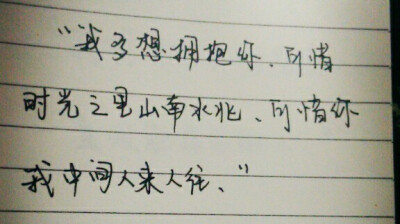 “我多想拥抱你、可惜
时光之里山南水北、可惜你
我中间人来人往、”